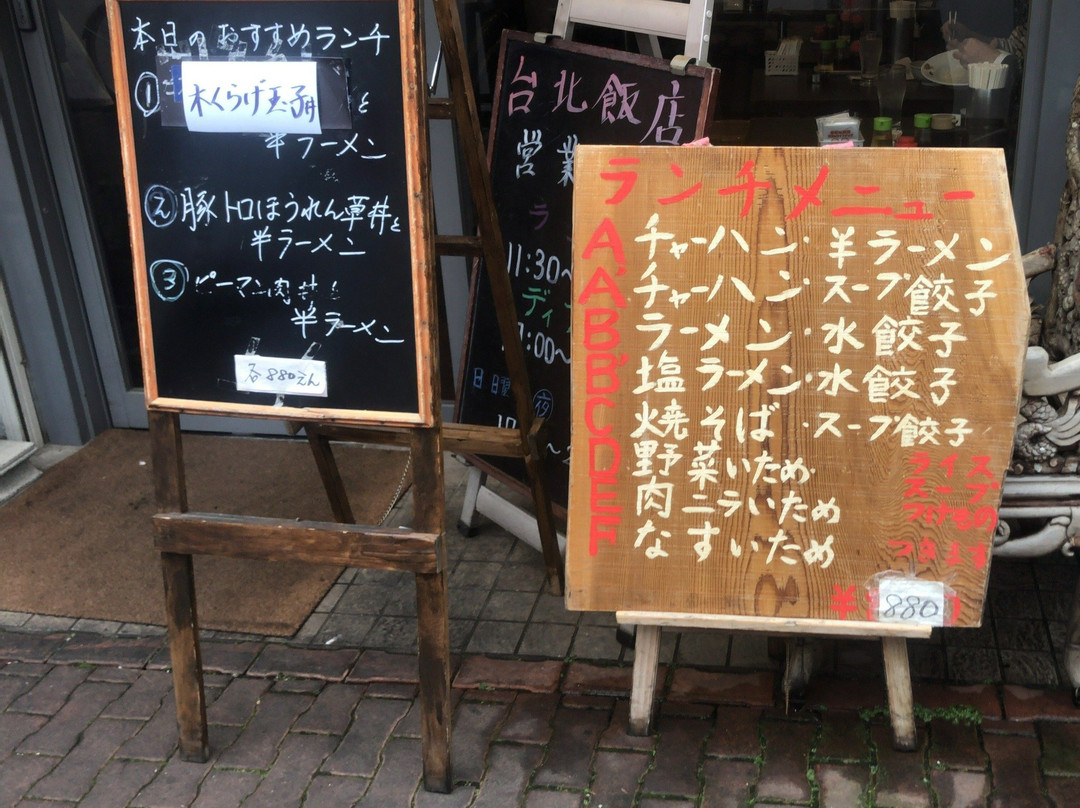 本日のおすすめランチ
① 木くらげ玉子丼と
半ラーメン
② 豚トロほうれん草丼と
半ラーメン
③ ピーマン肉丼と
半ラーメン
各880えん
台北飯店
営業
ラン
11:30~
ディ
17:00~
日曜 夜
ランチメニュー
A チャーハン・半ラーメン
A' チャーハン・スープ餃子
B ラーメン・水餃子
B' 塩ラーメン・水餃子
C 焼そば・スープ餃子
D 野菜いため
E 肉ニラいため
F なすいため
ライス
スープ
つけもの
つきます
¥880